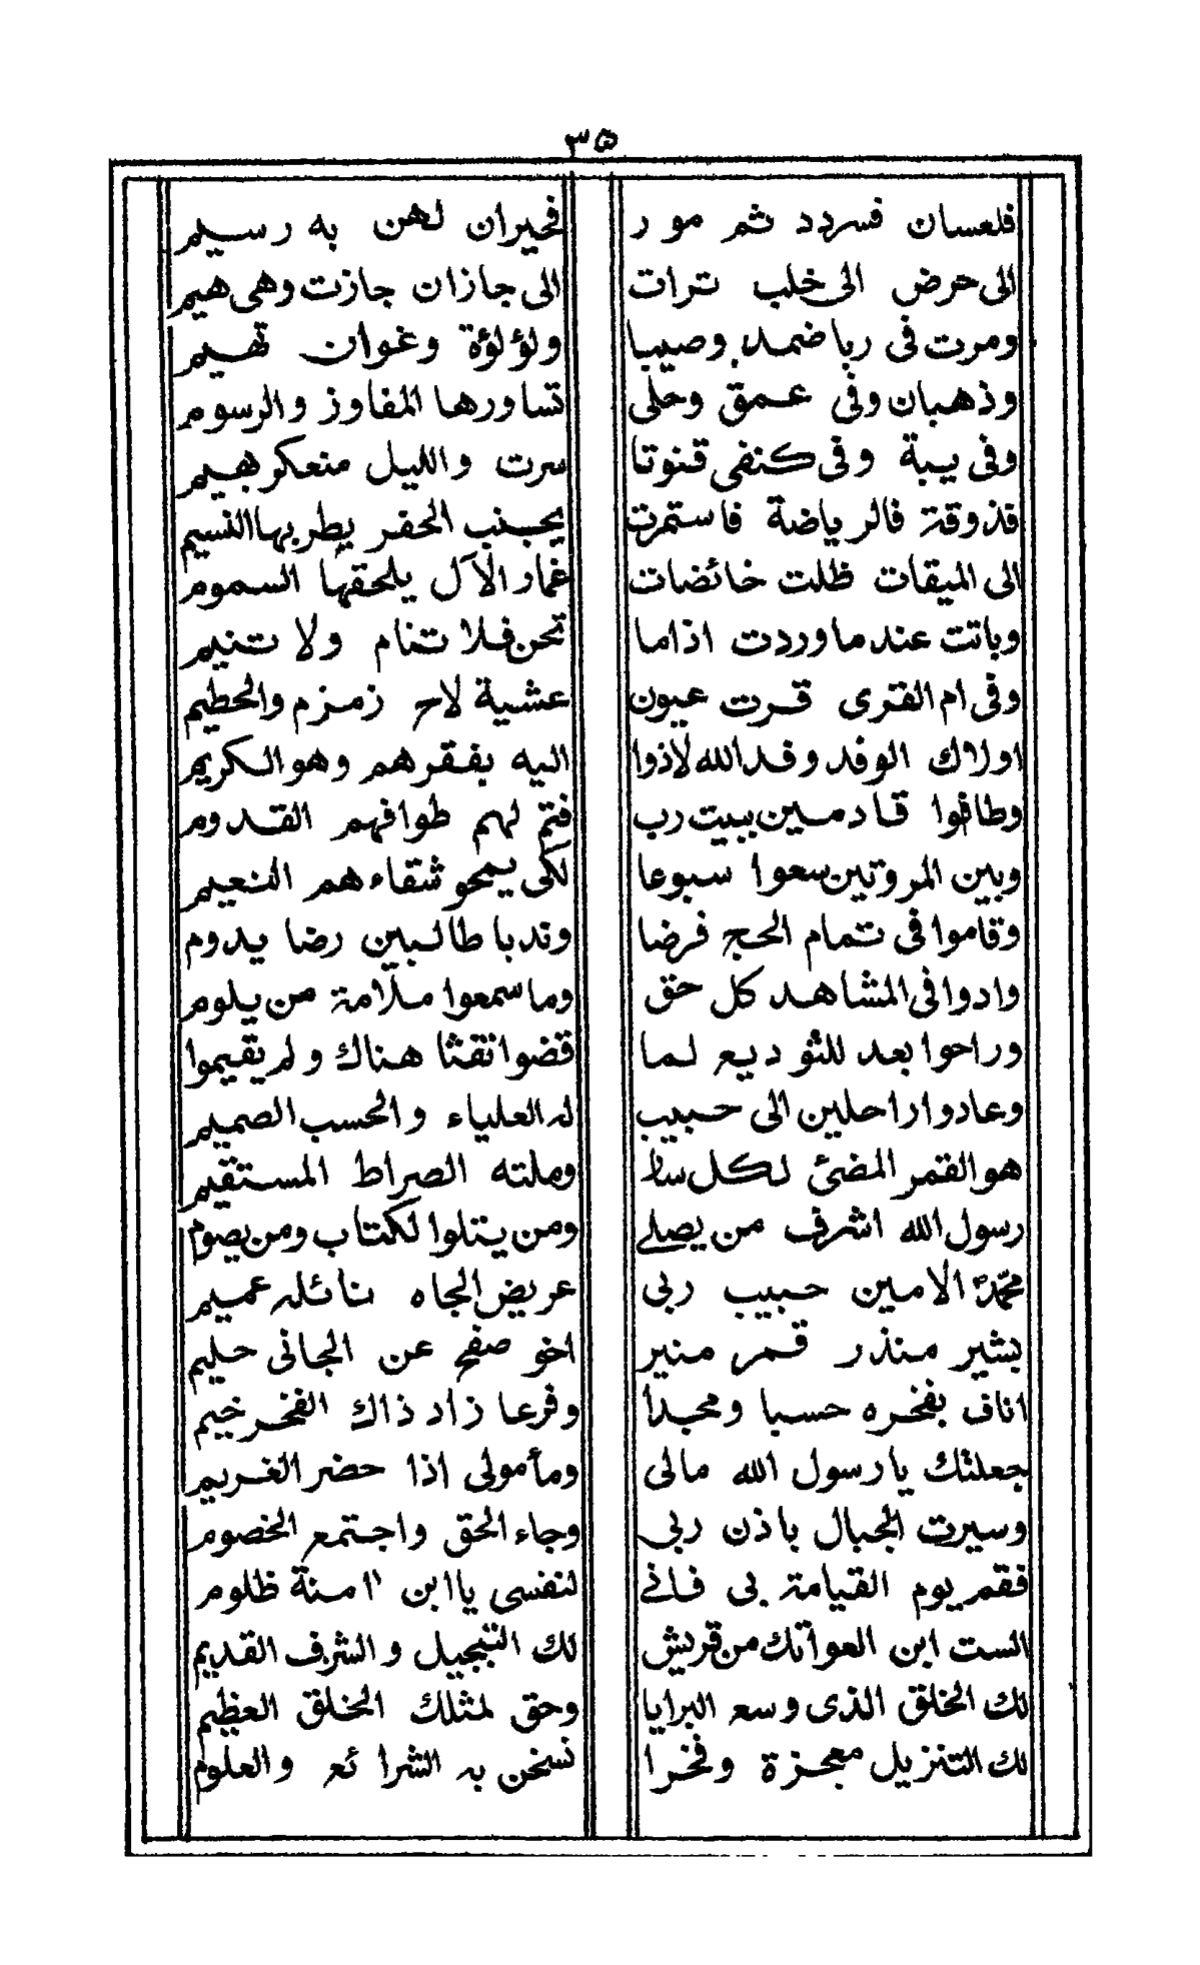 ٣٥
فلعسان فسردد ثم مور فحيران لهن به رسيم
الى حرض الى خلب ترات الى جازان جازت وهى هيم
ومرت فى ربا ضمد وصبيا ولؤلؤة وغوان تهيم
وذهبان وفى عمق وحلى تساورها المفاوز والرسوم
وفى يبة وفى كنفى قنوتا سرت والليل منعكر بهيم
فذوقة فالرياضة فاستمرت بجنب الحفر يطربها النسيم
الى الميقات ظلت خائضات غمار الآل يلحقها السموم
وباتت عند ما وردت اذاما تحن فلا تنام ولا تنيم
وفى ام القرى قرت عيون عشية لاح زمزم والحطيم
اولاك الوفد وفد الله لاذوا اليه بفقرهم وهو الكريم
وطافوا قادمين ببيت رب فتم لهم طوافهم القدوم
وبين المروتين سعوا سبوعا لكى يمحو شقاءهم النعيم
وقاموا فى تمام الحج فرضا وندبا طالبين رضا يدوم
وادوا فى المشاهد كل حق وما سمعوا ملامة من يلوم
وراحوا بعد للتوديع لما قضوا تفثا هناك ولم يقيموا
وعادوا راحلين الى حبيب له العلياء والحسب الصميم
هو القمر المضئ لكل سار وملته الصراط المستقيم
رسول الله اشرف من يصلے ومن يتلوا لكتاب ومن يصوم
محمد الامين حبيب ربى عريض الجاه نائله عميم
بشير منذر قمر منير اخو صفح عن الجانى حليم
اناف بفخره حسبا ومجدا وفرعا زاد ذاك الفخر خيم
جعلتك يا رسول الله مالى ومأمولى اذا حضر الغريم
وسيرت الجبال باذن ربى وجاء الحق واجتمع الخصوم
فقم يوم القيامة بى فانے لنفسى يا ابن امنة ظلوم
الست ابن العواتك من قريش لك التبجيل والشرف القديم
لك الخلق الذى وسع البرايا وحق لمثلك الخلق العظيم
لك التنزيل معجزة وفخرا نسخن به الشرائع والعلوم